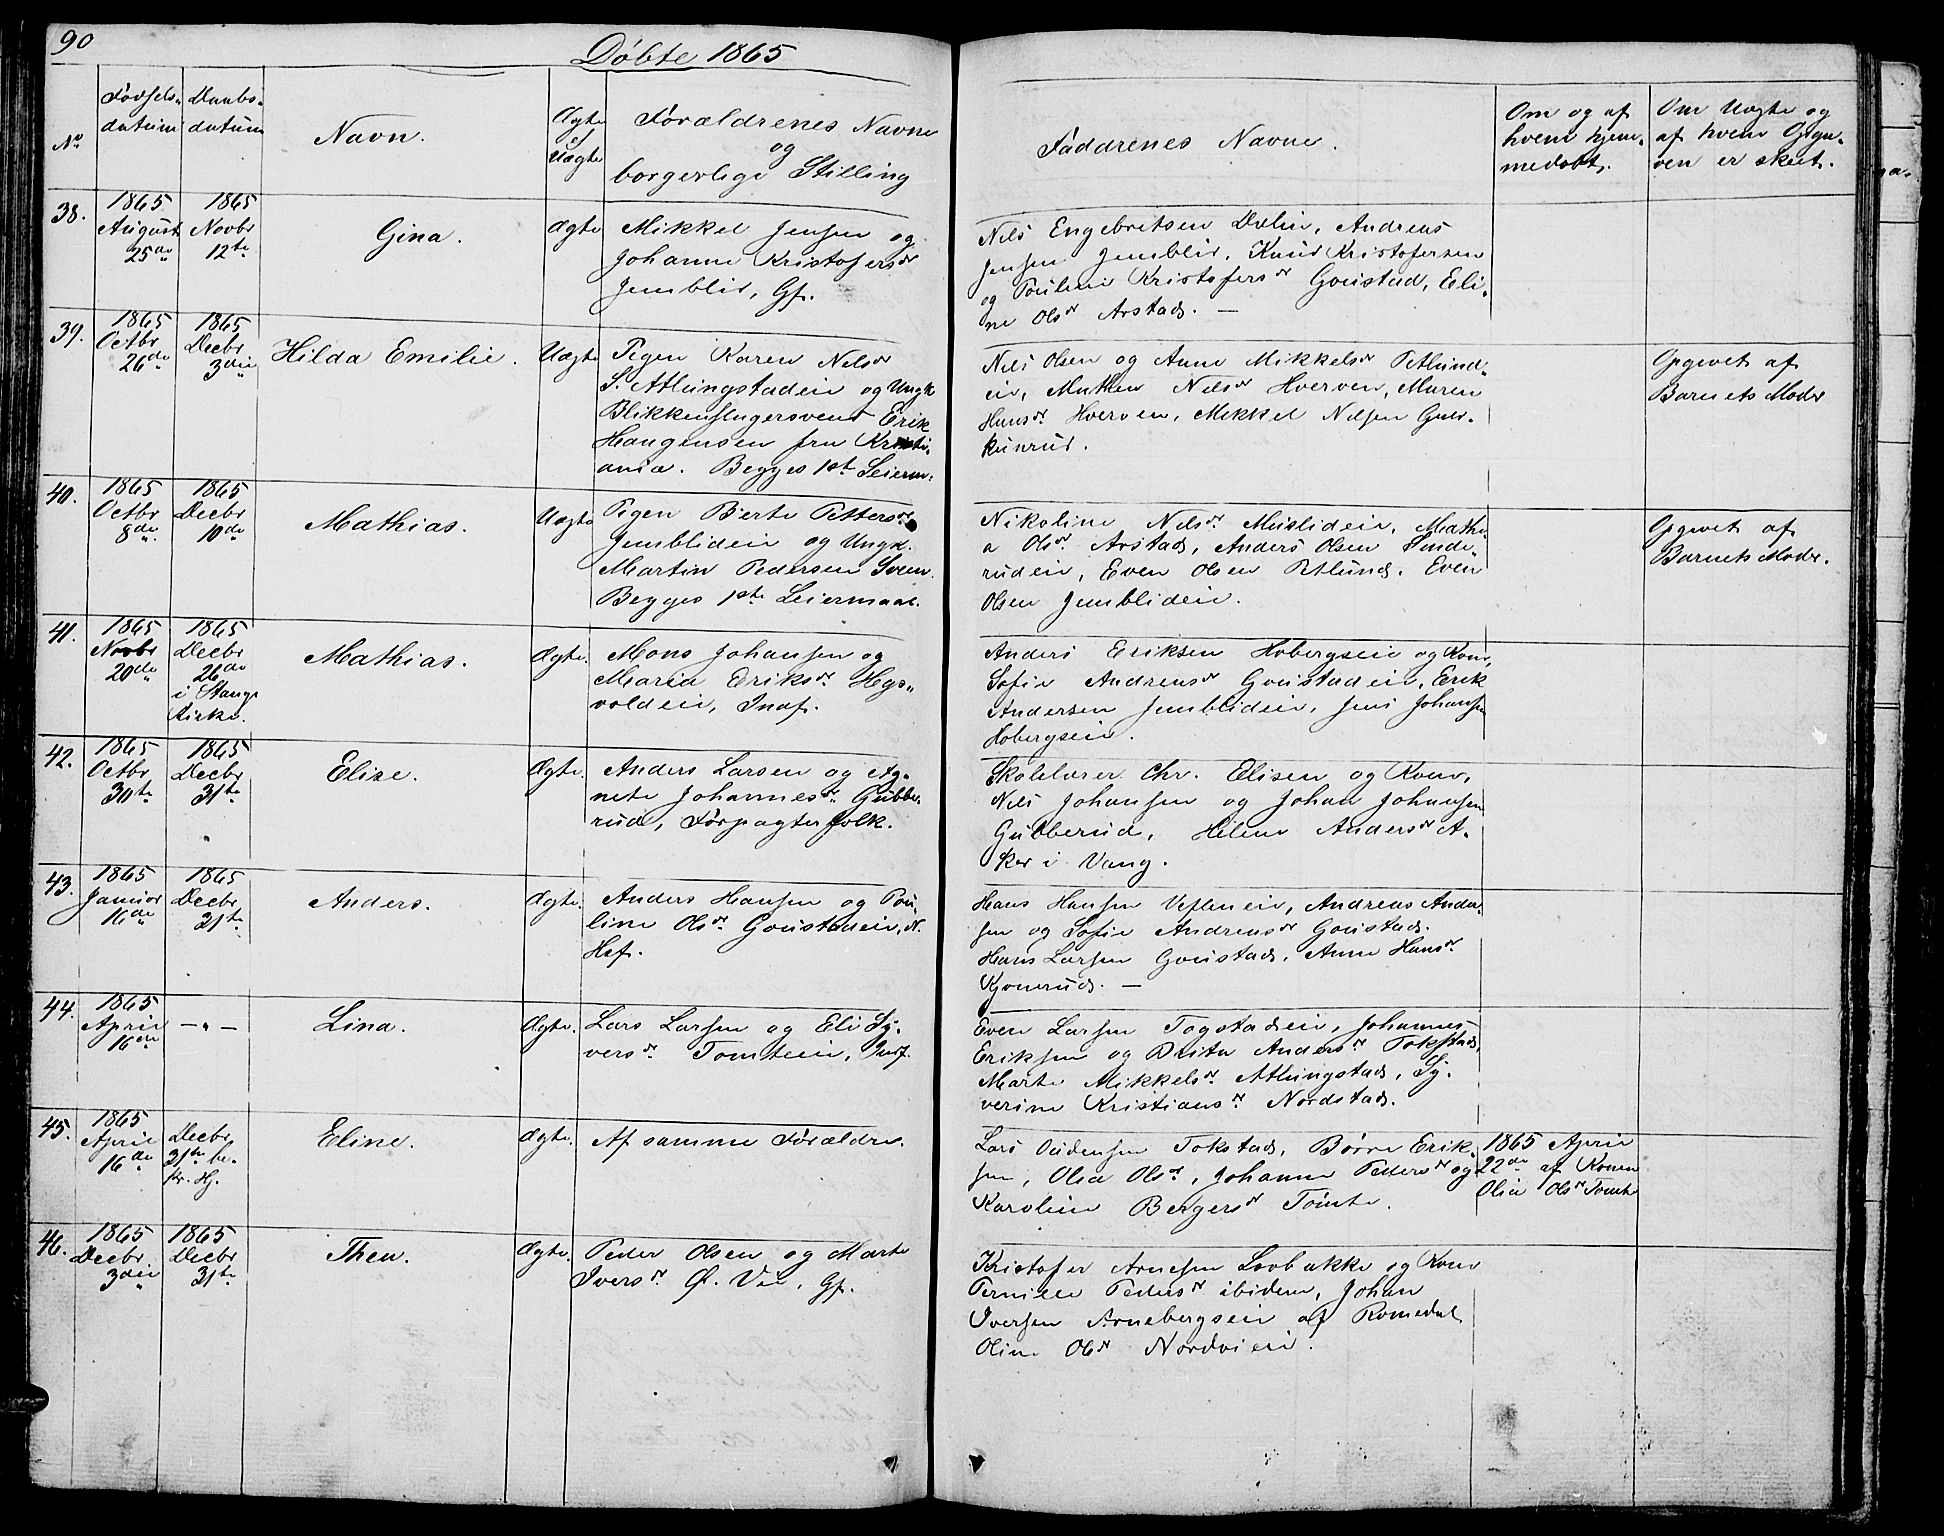 90
Døbte 1865
No
Fødsels-
datum
Daabs-
datum
Navn.
Ægte
el
Uægte
Forældrenes Navne
og
borgerlige Stilling
Faddrenes Navne.
Om og af
hvem hjem-
medøbt.
Om Uægte og
af hvem Opgi-
ven er skeet.
38.
1865
August
25de
1865
Novbr
12te
Gina.
Ægte
Mikkel Jensen og
Johanne Kristofersdr
Jemblid, Gf.
Nils Engebretsen Dælin, Andreas
Jensen Jemblid, Knud Kristofersen
og Pauline Kristofersdr Goustad, Eli-
ne Olsdr Arstad. —
39.
1865
Octbr
26de
1865
Decbr
3die
Hilda Emilie.
Uægte
Pigen Karen Nilsdr
S. Atlungstadeie og Ungk
Blikkenslagersvend Erik
Haagensen fra Kristi-
ania. Begges 1ste Leierm.
Nils Olsen og Anne Mikkelsdr Petlund-
eie, Mathea Nilsdr Hverven, Maren
Hansdr Hverven, Mikkel Nilsen Guls-
kinrud.
Opgivet af
Barnets Moder
40.
1865
Octbr
8de
1865
Decbr
10de
Mathias.
Uægte
Pigen Berte Pettersdr
Jemblideie og Ungk.
Martin Pedersen Sveen.
Begges 1ste Leiermaal.
Nikoline Nilsdr Mæhlideie, Mathi-
a Olsdr Arstad, Anders Olsen Sinde-
rudeie, Even Olsen Petlund, Even
Olsen Jemblideie.
Opgivet af
Barnets Moder.
41.
1865
Novbr
20de
1865
Decbr
26de
i Stange
Kirke.
Mathias.
Ægte.
Mons Johansen og
Maria Eriksdr Hegs-
voldeie, Indf.
Anders Eriksen Hobergseie og Kone,
Sofie Andreasdr Goustadeie, Erik
Andersen Jemblideie, Jens Johansen
Hobergseie.
42.
1865
Octbr
30te
1865
Decbr
31te
Elise.
Ægte.
Anders Larsen og Ag-
nete Johannesdr Gubbe-
rud, Forpagterfolk.
Skolelærer Chr. Elisen og Kone,
Nils Johansen og Johan Johansen
Gubberud, Helene Andersdr A-
ker i Vang.
43.
1865
Januar
16de
1865
Decbr
31te
Anders.
Ægte.
Anders Hansen og Pau-
line Olsdr Goustadeie, N.
Hsf.
Hans Hansen Veflineie, Andreas Ander-
sen og Sofie Andreasdr Goustad.
Hans Larsen Goustad, Anne Hansdr
Kjonerud. —
44.
1865
April
16de
— „ —
Lina.
Ægte.
Lars Larsen og Eli Sy-
versdr Tomteeie, Indf.
Even Larsen Togstadeie, Johannes
Eriksen og Brita Andersdr Tokstad,
Marte Mikkelsdr Atlungstad, Sy-
verine Kristiansdr Nordstad.
45.
1865
April
16de
Decbr
31te be-
kr. Hj.
Eline.
Ægte.
Af samme Forældre.
Lars Oudensen Tokstad, Børre Erik-
sen, Olia Olsdr, Johanne Pedersdr og
Karoline Bergersdr Tomte.
1865 April
22de af Konen
Olia Olsdr Tomte
46.
1865
Decbr
3die
1865
Decbr
31te
Thea.
Ægte.
Peder Olsen og Marte
Iversdr Ø. Vie, Gf.
Kristofer Arnesen Lovbakke og Kone
Pernille Pedersdr ibidem, Johan
Iversen Arnebergseie af Romedal
Oline Olsdr Nordvieie.